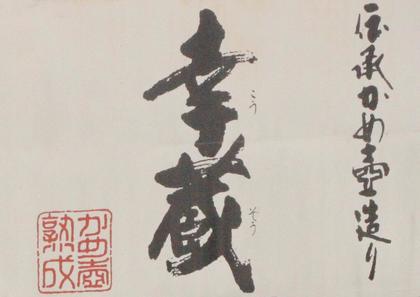 伝承かめ壷造り
幸蔵
こうぞう
かめ壺
熟成